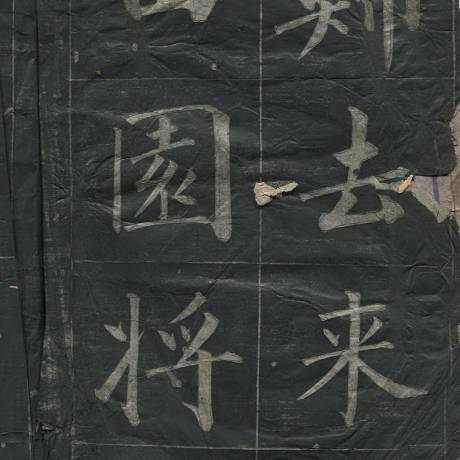 去来
園将